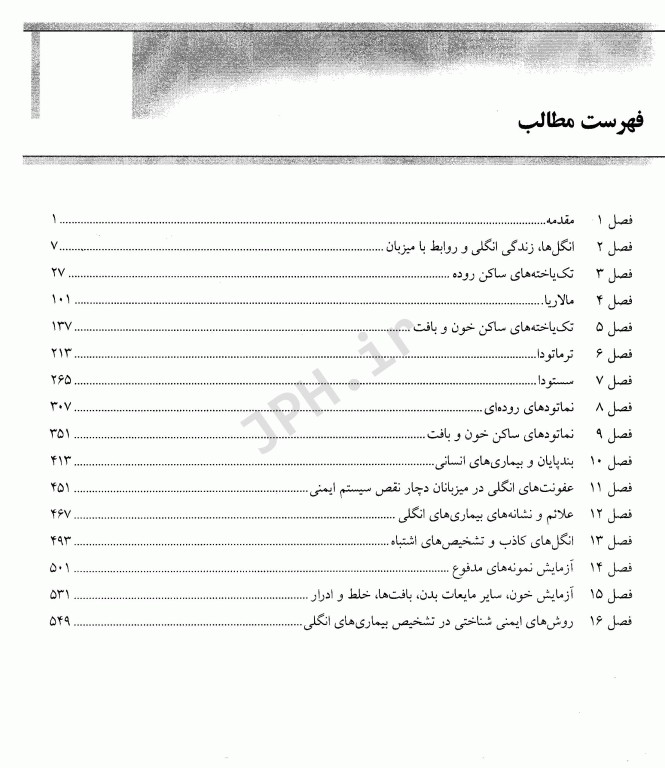 فهرست مطالب
فصل ۱ مقدمه ۱
فصل ۲ انگل‌ها، زندگی انگلی و روابط با میزبان ۷
فصل ۳ تک‌یاخته‌های ساکن روده ۲۷
فصل ۴ مالاریا ۱۰۱
فصل ۵ تک‌یاخته‌های ساکن خون و بافت ۱۳۷
فصل ۶ ترماتودا ۲۱۳
فصل ۷ سستودا ۲۶۵
فصل ۸ نماتودهای روده‌ای ۳۰۷
فصل ۹ نماتودهای ساکن خون و بافت ۳۵۱
فصل ۱۰ بندپایان و بیماری‌های انسانی ۴۱۳
فصل ۱۱ عفونت‌های انگلی در میزبانان دچار نقص سیستم ایمنی ۴۵۱
فصل ۱۲ علائم و نشانه‌های بیماری‌های انگلی ۴۶۷
فصل ۱۳ انگل‌های کاذب و تشخیص‌های اشتباه ۴۹۳
فصل ۱۴ آزمایش نمونه‌های مدفوع ۵۰۱
فصل ۱۵ آزمایش خون، سایر مایعات بدن، بافت‌ها، خلط و ادرار ۵۳۱
فصل ۱۶ روش‌های ایمنی شناختی در تشخیص بیماری‌های انگلی ۵۴۹
JPH.ir